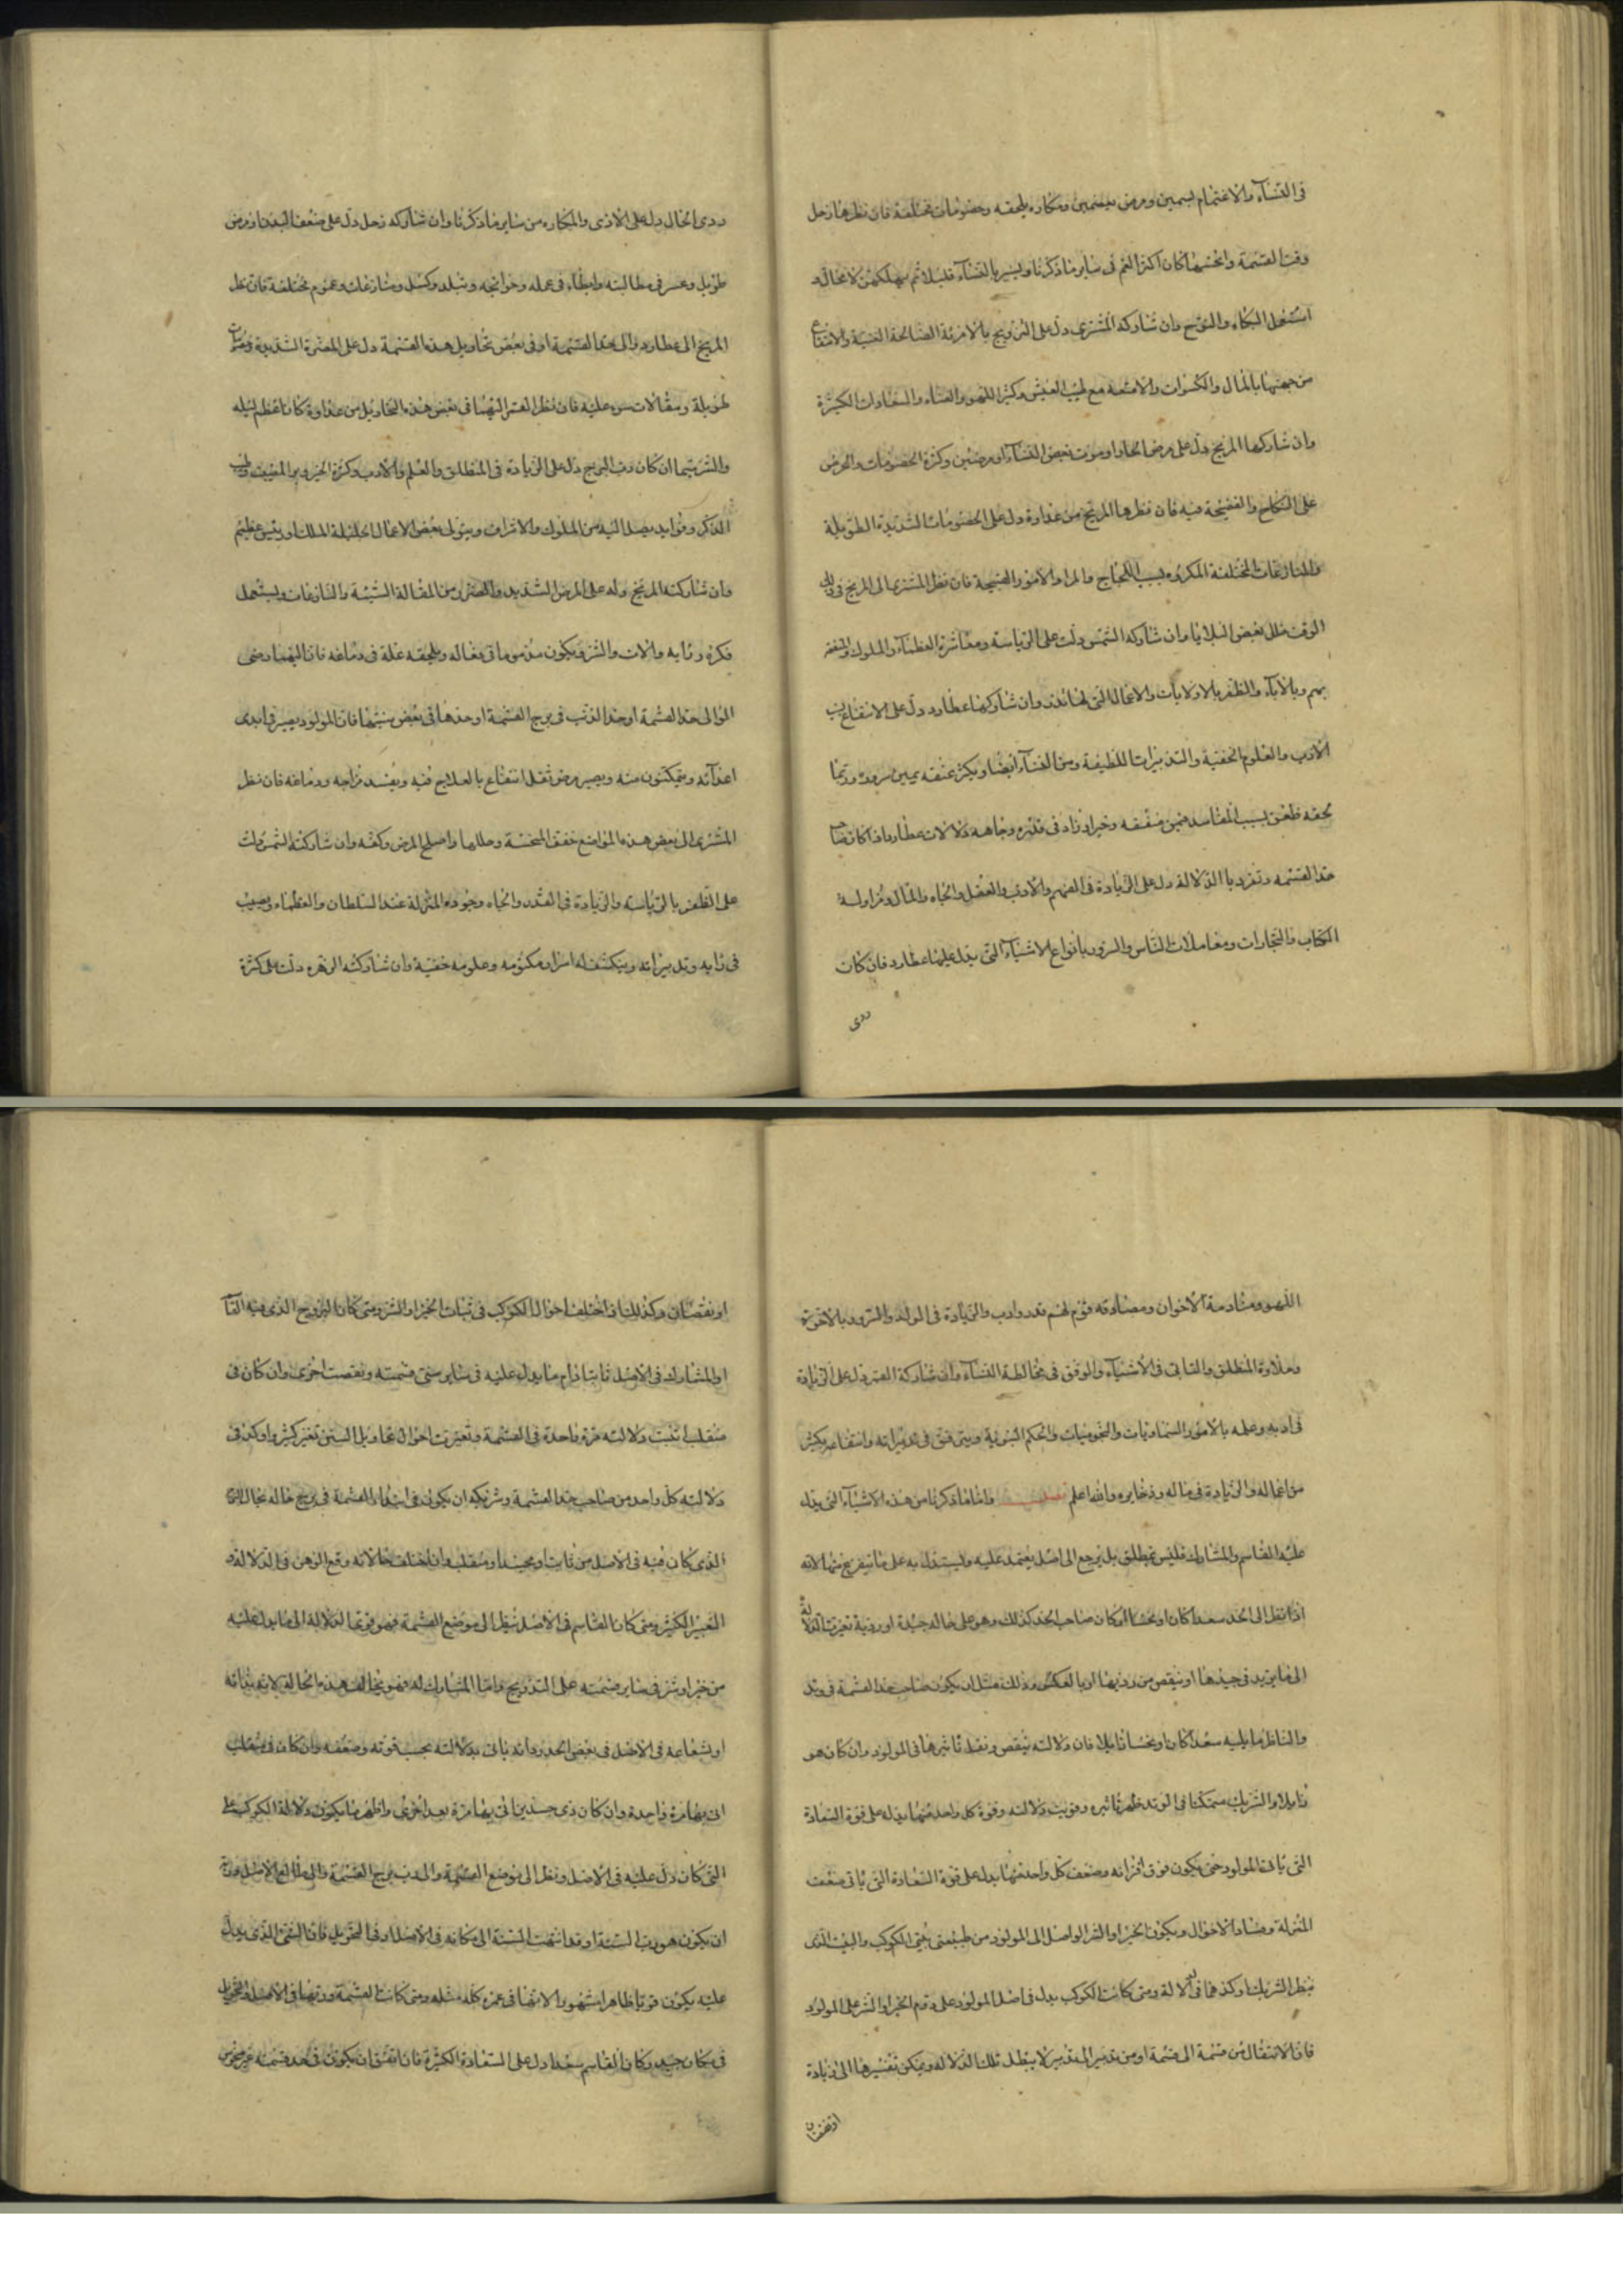 فى النساء والاغتمام بسببهن ومرض بعضهن ومكاره يلحقه وخصومات مختلفة فان نظرها زحل
وقت القسمة وانحسها كان اكثر الغم فى ساير ما ذكرنا ويسير بالنساء قليلا ثم يهلكهن لا محالة و
استعمل البكاء والنوح وان شاركه المشترى دل على التزويج بالامراة الصالحة الغنية والانتفاع
من جهتها بالمال والكسوات والامتعة مع طيب العيش وكثرة اللهو والغناء والسعادات الكثيرة
وان شاركها المريخ دل على مرض الحاد او موت بعض النساء او مرضهن وكثرة الخصومات والحرص
على النكاح والفضيحة فيه فان نظرها المريخ من عداوة دل على الخصومات الشديدة الطويلة
والمنازعات المختلفة المكروه بسبب النكاح والمراء والامور القبيحة فان نظر المشترى الى المريخ فى ذلك
الوقت حلل بعض البلايا وان شاركه الشمس دلت على الرياسة ومعاشرة العظماء والملوك والمنفعة
بهم وبالآباء والظفر بالاولايات والاعمال التى لها قدر وان شاركها عطارد دل على الانتفاع بسبب
الادب والعلوم الخفية والتدبيرات اللطيفة ومن النساء ايضا ويكثر عشقه بمن سروره وربما
لحقه طعن بسبب المفاسد فمن منفعه وخير اذ زاد فى قدره وجاهه دلالات عطارد اذا كان صاحب
حد القسمة وتفرد بالدلالة دل على الزيادة فى الفهم والادب والعقل والجاه والمال ومزاولة
الكتاب والتجارات ومعاملات الناس والسرور بانواع الاشياء التى يدل عليها عطارد فان كان
ردى
ردى الحال دل على الاذى والمكاره من ساير ما ذكرنا وان شاركه زحل دل على ضعف البدن او مرض
طويل وعسر فى مطالبته وابطاء فى عمله وحوائجه وتبلد وكسل ومنازعات وغموم مختلفة فان نظر
المريخ الى عطارد والى حد القسمة او فى بعض تحاويل هذه القسمة دل على المضرة الشديدة
طويلة ومقالات سوء عليه فان نظر القمر اليهما فى بعض هذه التحاويل من عداوة كان اعظم لبليه
والشر سيما ان كان رب البرج دل على الزيادة فى المنطلق والعلم والادب وكثرة الخير وبر المعيشة وطيب
الذكر وفوايد يصل اليه من الملوك والاشراف ويتولى بعض الاعمال الجليلة الملك او رئيس عظيم
وان شاركته المريخ دل على المرض الشديد والضرر من المقالة السيئة والمنازعات ويستعمل
فكره ورايه والات والشر ويكون مذموما فى فعاله ويلحقه علة فى دماغه فان اليهما رضى
المو الى حد القسمة او حد الذنب فى برج القسمة او حدها فى بعض سنيها فان المولود يصير فى ايدى
اعدآئه ويتمكنون منه ويصير مرض تقل انتفاع بالعلاج فيه ويفسد مزاجه ودماغه فان نظر
المشترى الى بعض هذه المواضع خفف المنحسة وحللها واصلح المرض وكفه وان شاركته الشمس دلت
على الظفر بالرياسة والزيادة فى القدر والجاه وجودة المنزلة عند السلطان والعظماء ويصيب
فى رايه وتدبيراته وينكشف له اسرار مكتومه وعلومه خفية وان شاركته الزهرة دلت على كثرة
اللهو ومنادمة الاخوان ومصادقه قوم لهم قدر وادب والزيادة فى الولد والسرور بالاخوة
وحلاوة المنطلق والتانى فى الاشياء والوفق فى مخالطة النساء وان شاركه القمر دل على الزيادة
فى ادبه وعلمه بالامور السماويات والنجوميات والحكم النبوية ويترفق فى تدبيراته وانتفاعه بكثير
من اعماله والزيادة فى ماله وذخايره والله اعلم واما ما ذكرنا من هذه الاشياء التى يدل
عليه القاسم والمشارك فليس بمطلق بل يرجع الى اصل يعتمد عليه وليستدل به على ما يتفرع منها لانه
اذا نقل الى الحد سعد كان او نحسا او كان صاحب الحد كذلك وهو على حاله جيدة او ردية تغيرت الدلالة
الى ما يزيد فى جيدها او ينقص من رديها او بالعكس وذلك مثل ان يكون صاحب حد القسمة فى وتد
والناظر ما يليه سعد كان او نحسا زايلا فان دلالته ينقص وتقل تاثيرها فى المولود وان كان هو
زايلا والشريك متمكنا فى الوتد ظهر تاثيره وقويت دلالته وقوة كل واحد منهما يدل على قوة السعادة
التى ياتى المولود حتى يكون فوق اقرانه وضعف كل واحد منهما يدل على قوة السعادة التى ياتى ضعف
المنزلة وفساد الاحوال ويكون الخير او الشر الواصل الى المولود من طبيعتى الكوكب والبيت الذى
ينظر الشريك وكذهما فى الدلالة ومتى كانت الكوكب يدل فى اصل المولود على دوم الخير او الشر على المولود
فان الانتقال من قسمة الى قسمة او من تدبير الى تدبير لا يبطل تلك الدلالة ويمكن تغييرها الى زيادة
او نقصان
او نقصان وكذلك اذا اختلف احوال الكوكب فى ثبات الخير او الشر ومتى كان البروج الذى فيه القاسم
او المشارك فى الاصل ثابتا دام ما يدل عليه فى ساير سنى قسمته ونقصت اخرى وان كان فى
منقلب اثبت دلالته مرة واحدة فى القسمة وتغيرت احوال تحاويل السنين تغير كثير واوكد فى
دلالته كل واحد من صاحب حد القسمة وشريكه ان يكون فى ابتداء القسمة فى برج حاله بحال البرج
الذى كان فيه فى الاصل من ثابت او مجسد او منقلب وان اختلف حالاته وقع الوهن فى الدلالة و
التغيير الكثير ومتى كان القاسم فى الاصل ينظر الى موضع القسمة فهو قوى الدلالة الى ما يدل عليه
من خير او شر فى ساير قسمته على التدريج واما المشارك له فهو يخالف هذه الحالة لانه بذاته
او شعاعه فى الاصل فى بعض الحد وانه ياتى بدلالته بحسب قوته وضعفه وان كان فى منقلب
اتى بها مرة واحدة وان كان ذى جسدين اتى بها مرة بعد اخرى واظهر ما يكون دلالة الكوكب على
التى كان دل عليه فى الاصل ونظر الى موضع القسمة والى رب برج القسمة والى طالع الاصل
ان يكون هو رب السنة او قد انتهت السنة الى مكانه فى الاصل او فى التحويل فان الشئ الذى يدل
عليه يكون قويا ظاهرا مشهورا لانتها فى عمره كله مثله ومتى كانت القسمة وربها فى الاصل والتحويل
فى مكان جيد وكان القاسم سعدا دل على السعادة الكثيرة فان اتفق ان يكون فى حد قسمته غير منحوس